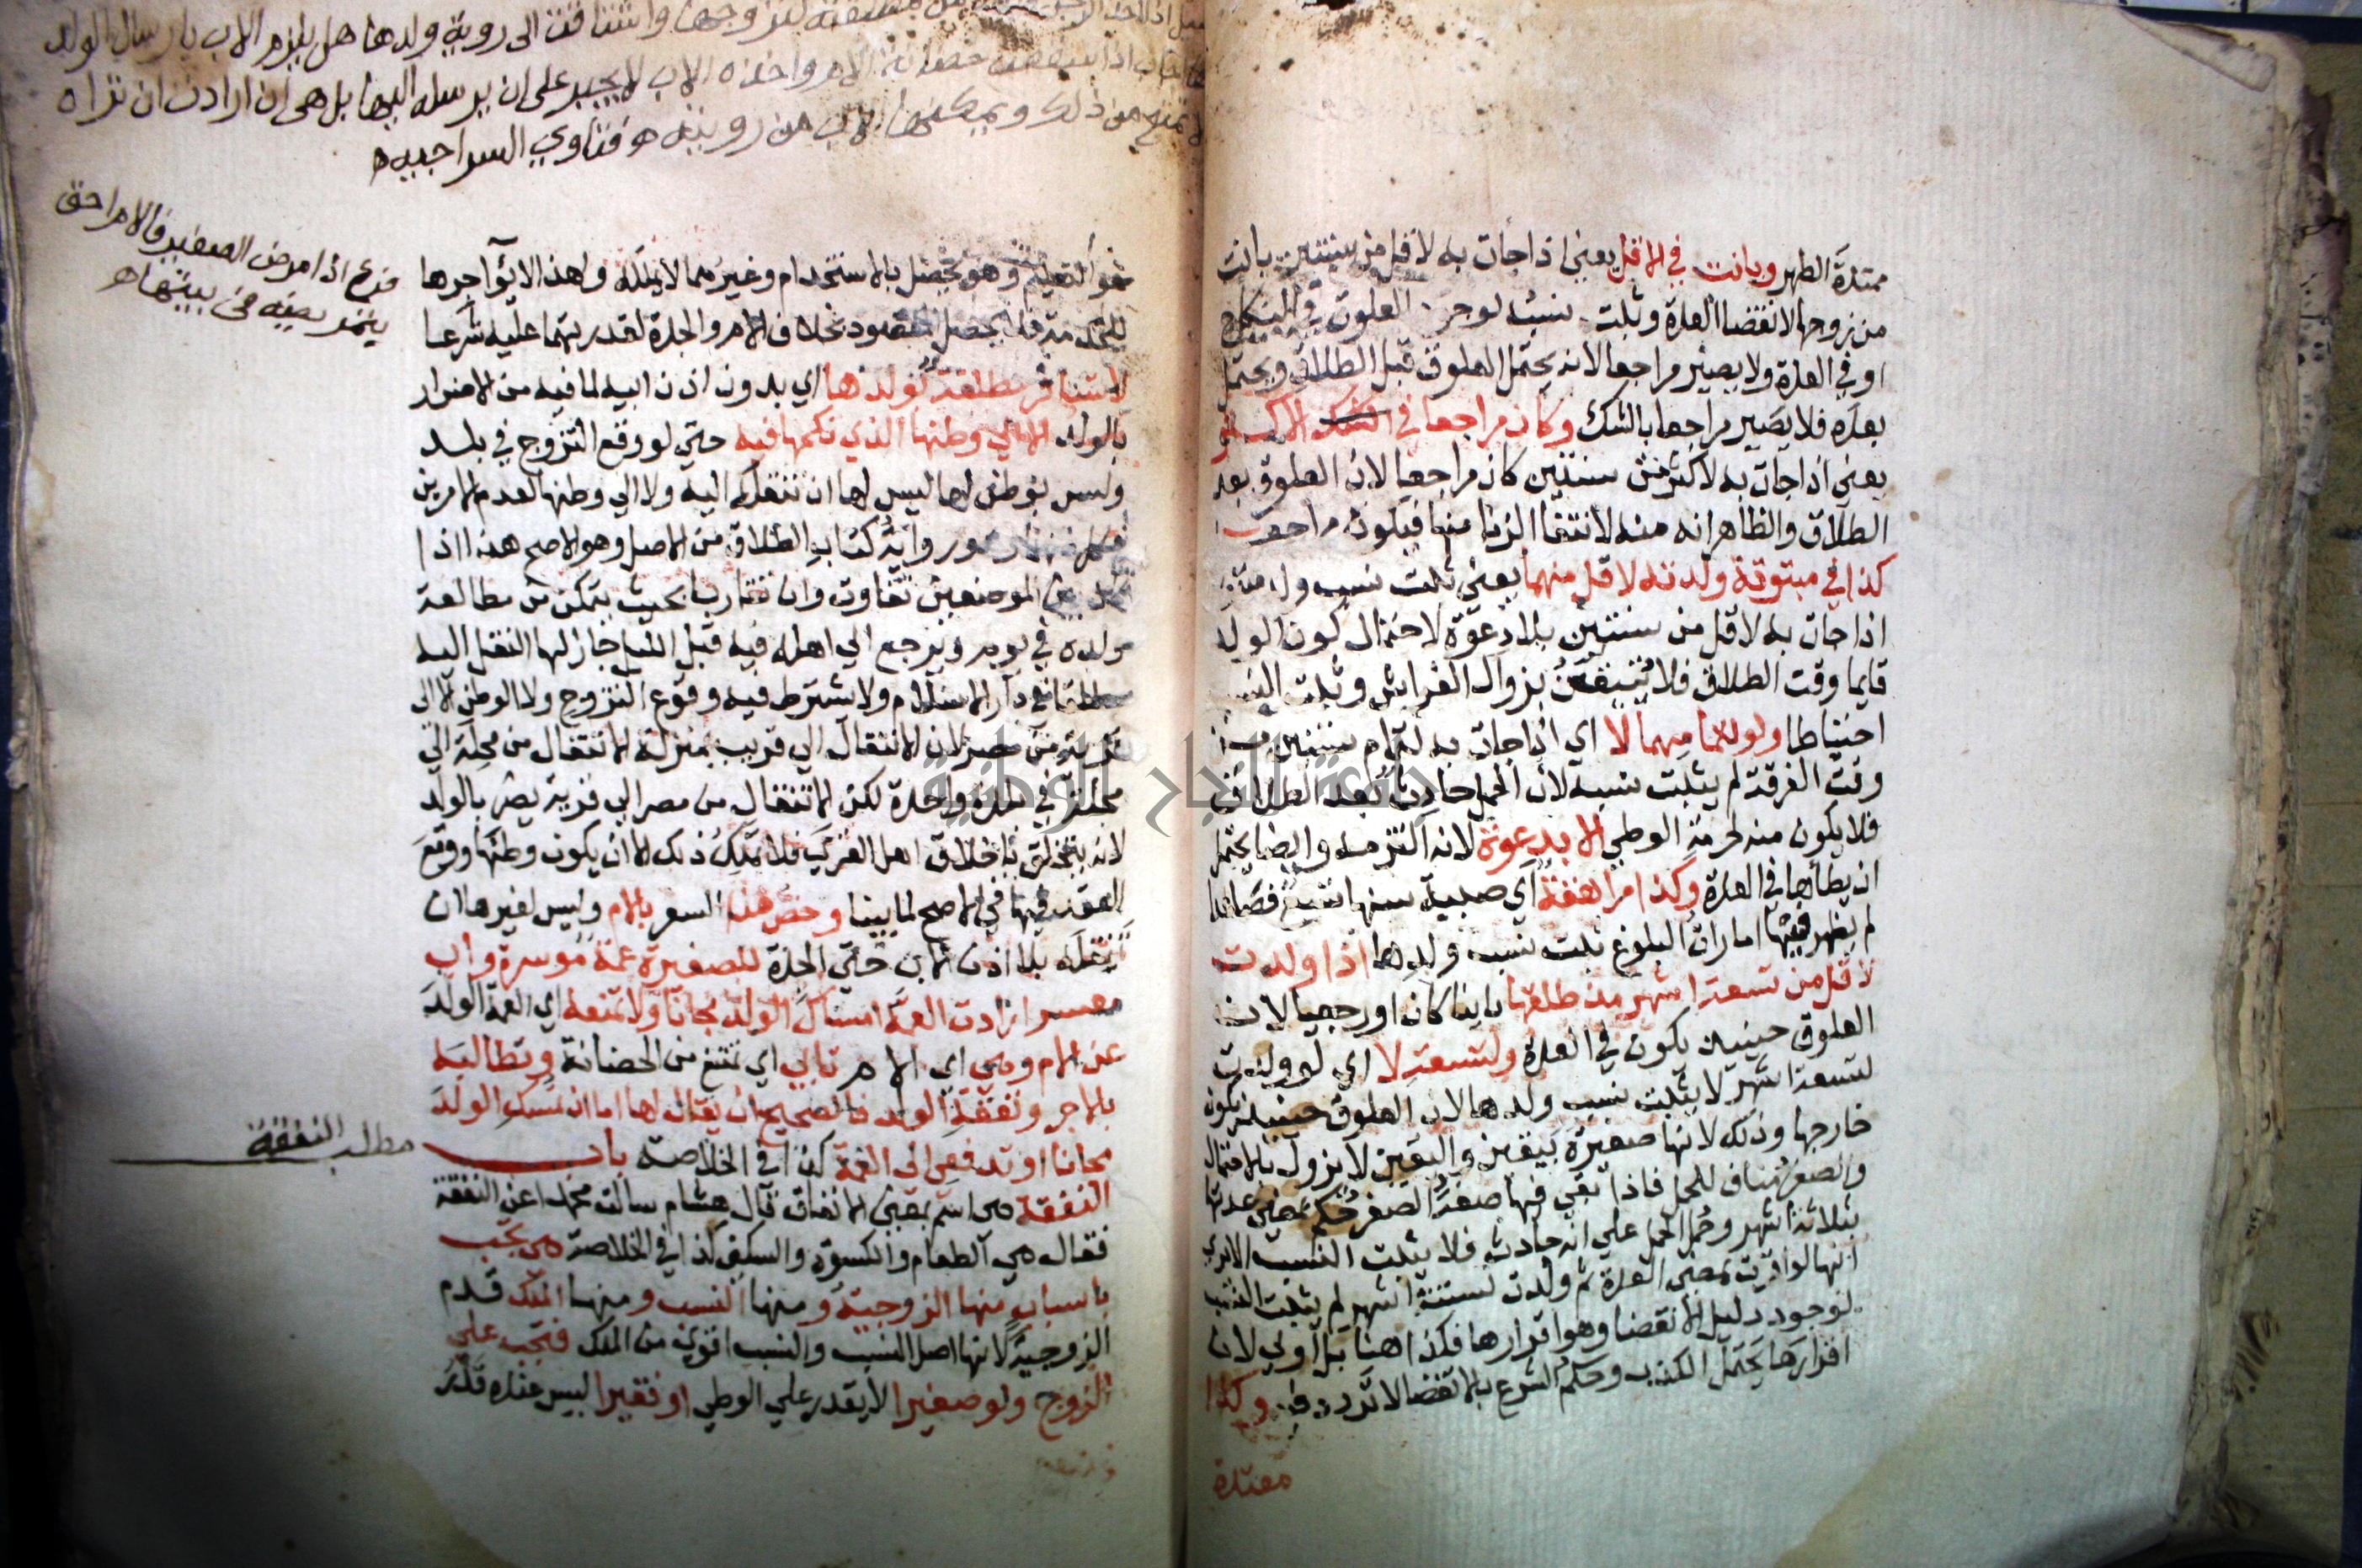 ممتدة الطهر وبانت في الاقل يعني اذا جات به لاقل من سنتين بانت
من زوجها لانقضا العدة وثبت نسبه لوجود العلوق في النكاح
او في العدة ولا يصير مراجعا لانه يحتمل العلوق قبل الطلاق ويحتمل
بعده فلا يصير مراجعا بالشك وكان مراجعا في
يعني اذا جات به لاكثر من سنتين كان مراجعا لان العلوق بعد
الطلاق والظاهر انه منه لانتفا الزنا منها فيكون مراجعا
كذا في مبتوتة ولدته لاقل منهما يعني ثبت نسب ولد
اذا جات به لاقل من سنتين بلا دعوة لاحتمال كون الولد
قايما وقت الطلاق فلا يتيقن بزوال الفراش وثبت النسب
احتياطا ولو لتمامهما لا اي اذا جات به لتمام سنتين من
وقت الفرقة لم يثبت نسبه لان الحمل حادث بعد الطلاق
فلا يكون منه لحرمة الوطي الا بدعوة لانه التزمه وايضا يحتمل
ان يطأها في العدة وكذا مراهقة اي صبية سنها تسع فصاعدا
لم يظهر فيها امارات البلوغ ثبت نسب ولدها اذا ولدت
لاقل من تسعة اشهر منذ طلقها باينا كان او رجعيا لان
العلوق حينيذ يكون في العدة ولتسعة لا اي لو ولدت
لتسعة اشهر لا يثبت نسب ولدها لان العلوق حينيذ يكون
خارجها وذلك لانها صغيرة بيقين واليقين لا يزول بالاحتمال
والصغر مناف للحمل فاذا بقي فيها صفة الصغر حكم بمضي عدتها
بثلاثة اشهر وحمل الحمل على انه حادث فلا يثبت النسب الا ترى
انها لو اقرت بمضي العدة ثم ولدت لستة اشهر لم يثبت النسب
لوجود دليل الانقضا وهو اقرارها فكذا هنا بل اولي لان
اقرارها يحتمل الكذب وحكم الشرع بالانقضا لا تردد فيه وكذا
معتدة
لتزوجها واشتاقت الى روية ولدها هل يلزم الاب بارسال الولد
اذا سقطت حضانة الام واخذه الاب لا يجبر على ان يرسله اليها بل هي ان ارادت ان تراه
لا تمنع من ذلك ويمكنها الاب من رويته ه فتاوي السراجيه ه
فرع اذا مرض الصغير فالام احق
بتمريضه في بيتها ه
نحو التعليم وهو يحصل بالاستخدام وغيرهما لا يملكه ولهذا لا يؤاجرها
للخدمة فلا يحصل المقصود بخلاف الام والجدة لقدرتهما عليه شرعا
لا تسافر مطلقة بولدها اي بدون اذن ابيه لما فيه من الاضرار
بالولد الا الي وطنها الذي نكحها فيه حتي لو وقع التزوج في بلد
وليس بوطن لها ليس لها ان تنقله اليه ولا الي وطنها لعدم الامرين
رواية كتاب الطلاق من الاصل وهو الاصح هذا اذا
كان بين الموضعين تفاوت وان تقاربا بحيث يتمكن من مطالعة
ولده في يوم ويرجع الي اهله فيه قبل الليل جاز لها النقل اليه
مطلقا في دار الاسلام ولا يشترط فيه وقوع التزوج ولا الوطن الا الى
قرية من مصر لان الانتقال الى قريب بمنزلة الانتقال من محلة الي
محلة في بلدة واحدة لكن الانتقال من مصر الي قرية يضر بالولد
لانه يتخلق باخلاق اهل القرى فلا تملك ذلك الا ان يكون وطنها ووقع
العقد فيها في الاصح لما بينا وخص هذا السفر بالام وليس لغيرها ان
تنقله بلا اذن الاب حتي الجدة للصغيرة عمة موسرة واب
معسر ارادت العمة امساك الولد مجانا ولا تمنعه اي العمة الولد
عن الام وهي اي الام تابي اي تمتنع من الحضانة وتطالبه
بالاجر ونفقة الولد فالصحيح ان يقال لها اما ان تمسك الولد
مجانا او تدفعي الى العمة كذا في الخلاصة باب
مطلب النفقة
النفقة هي اسم بمعني الانفاق قال هشام سالت محمدا عن النفقة
فقال هي الطعام والكسوة والسكنى كذا في الخلاصة هي تجب
باسباب منها الزوجية ومنها النسب ومنها الملك قدم
الزوجية لانها اصل النسب والنسب اقوي من الملك فتجب علي
الزوج ولو صغيرا لا يقدر علي الوطي او فقيرا ليس عنده قدر
جامعة النجاح الوطنية